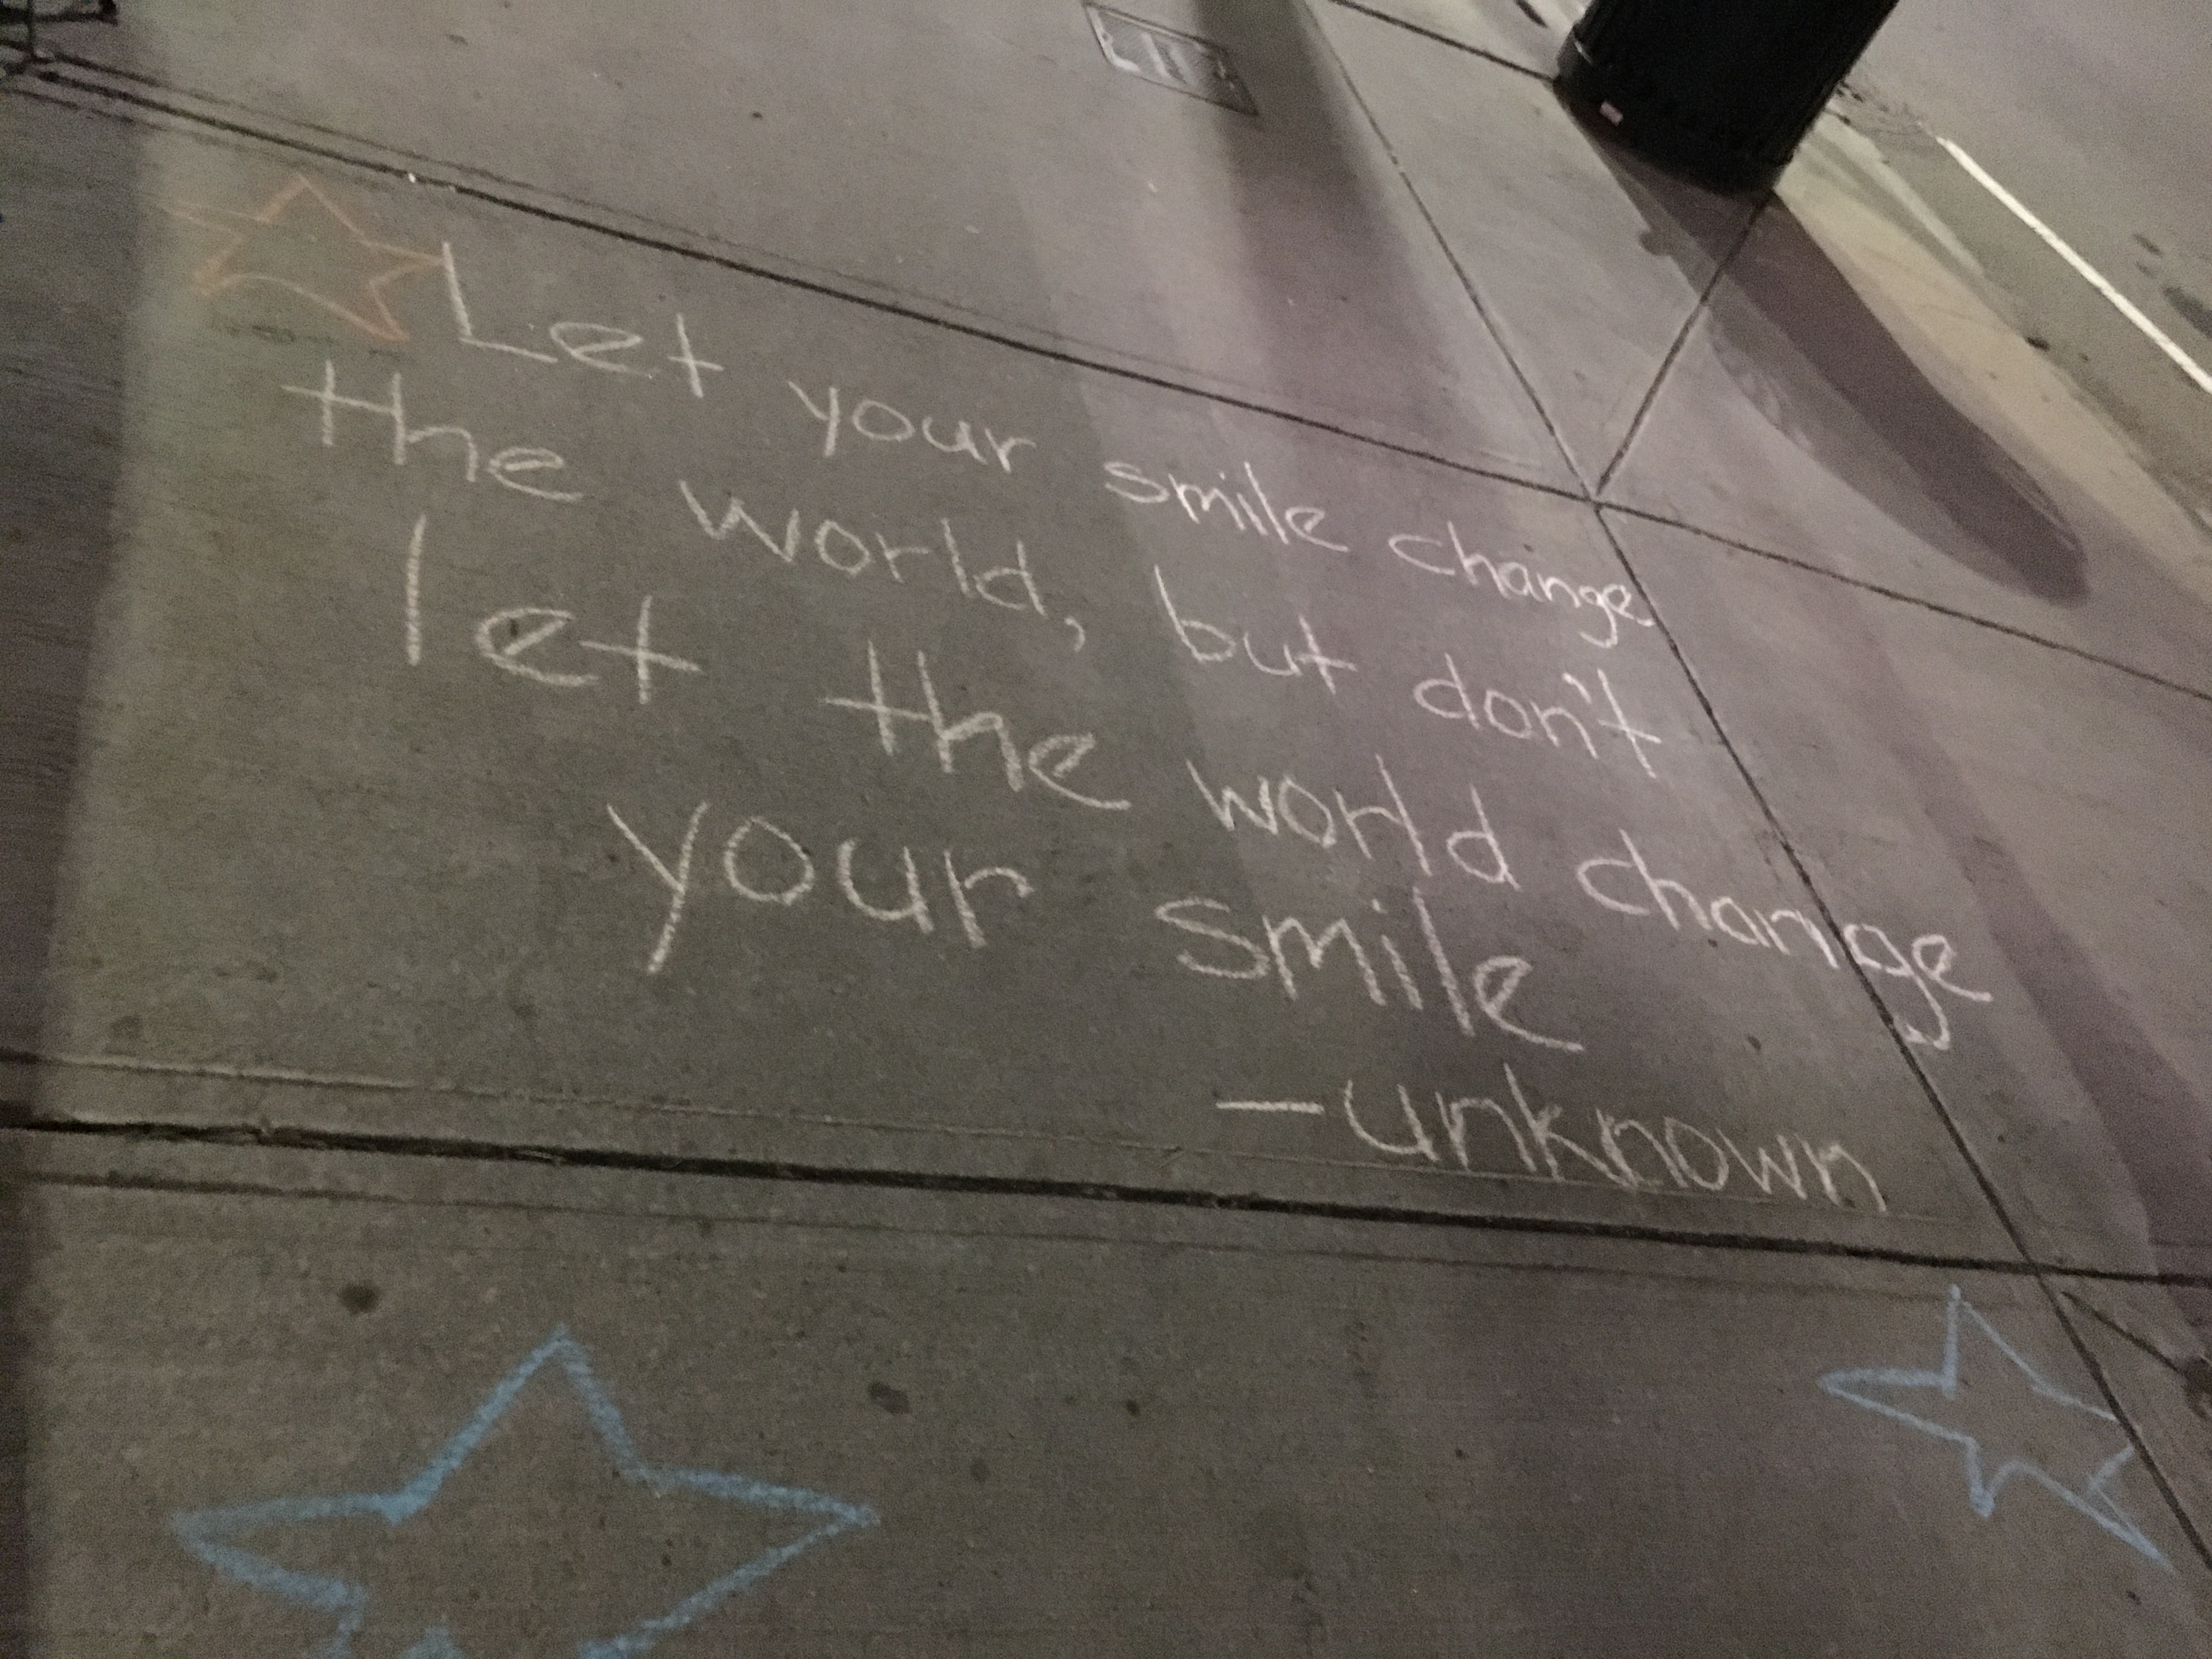 Let your smile change
the world, but don't
let the world change
your smile
-unknown